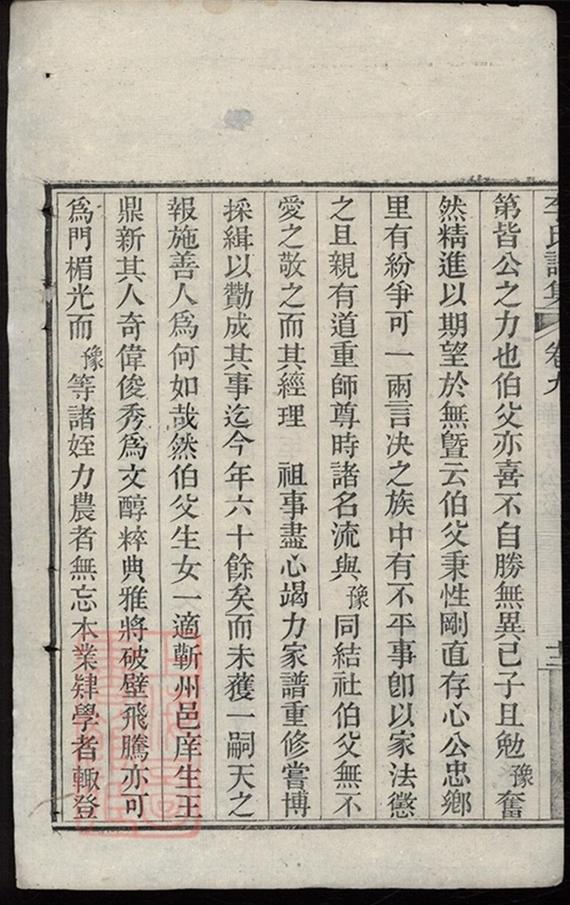 李氏譜集 卷九 十二
第皆公之力也伯父亦喜不自勝無異己子且勉豫奮
然精進以期望於無曁云伯父秉性剛直存心公忠鄉
里有紛爭可一兩言决之族中有不平事卽以家法懲
之且親有道重師尊時諸名流與豫同結社伯父無不
愛之敬之而其經理 祖事盡心竭力家譜重修嘗博
採緝以勷成其事迄今年六十餘矣而未獲一嗣天之
報施善人爲何如哉然伯父生女一適蘄州邑庠生王
鼎新其人奇偉俊秀爲文醇粹典雅將破壁飛騰亦可
爲門楣光而豫等諸姪力農者無忘本業肄學者輙登